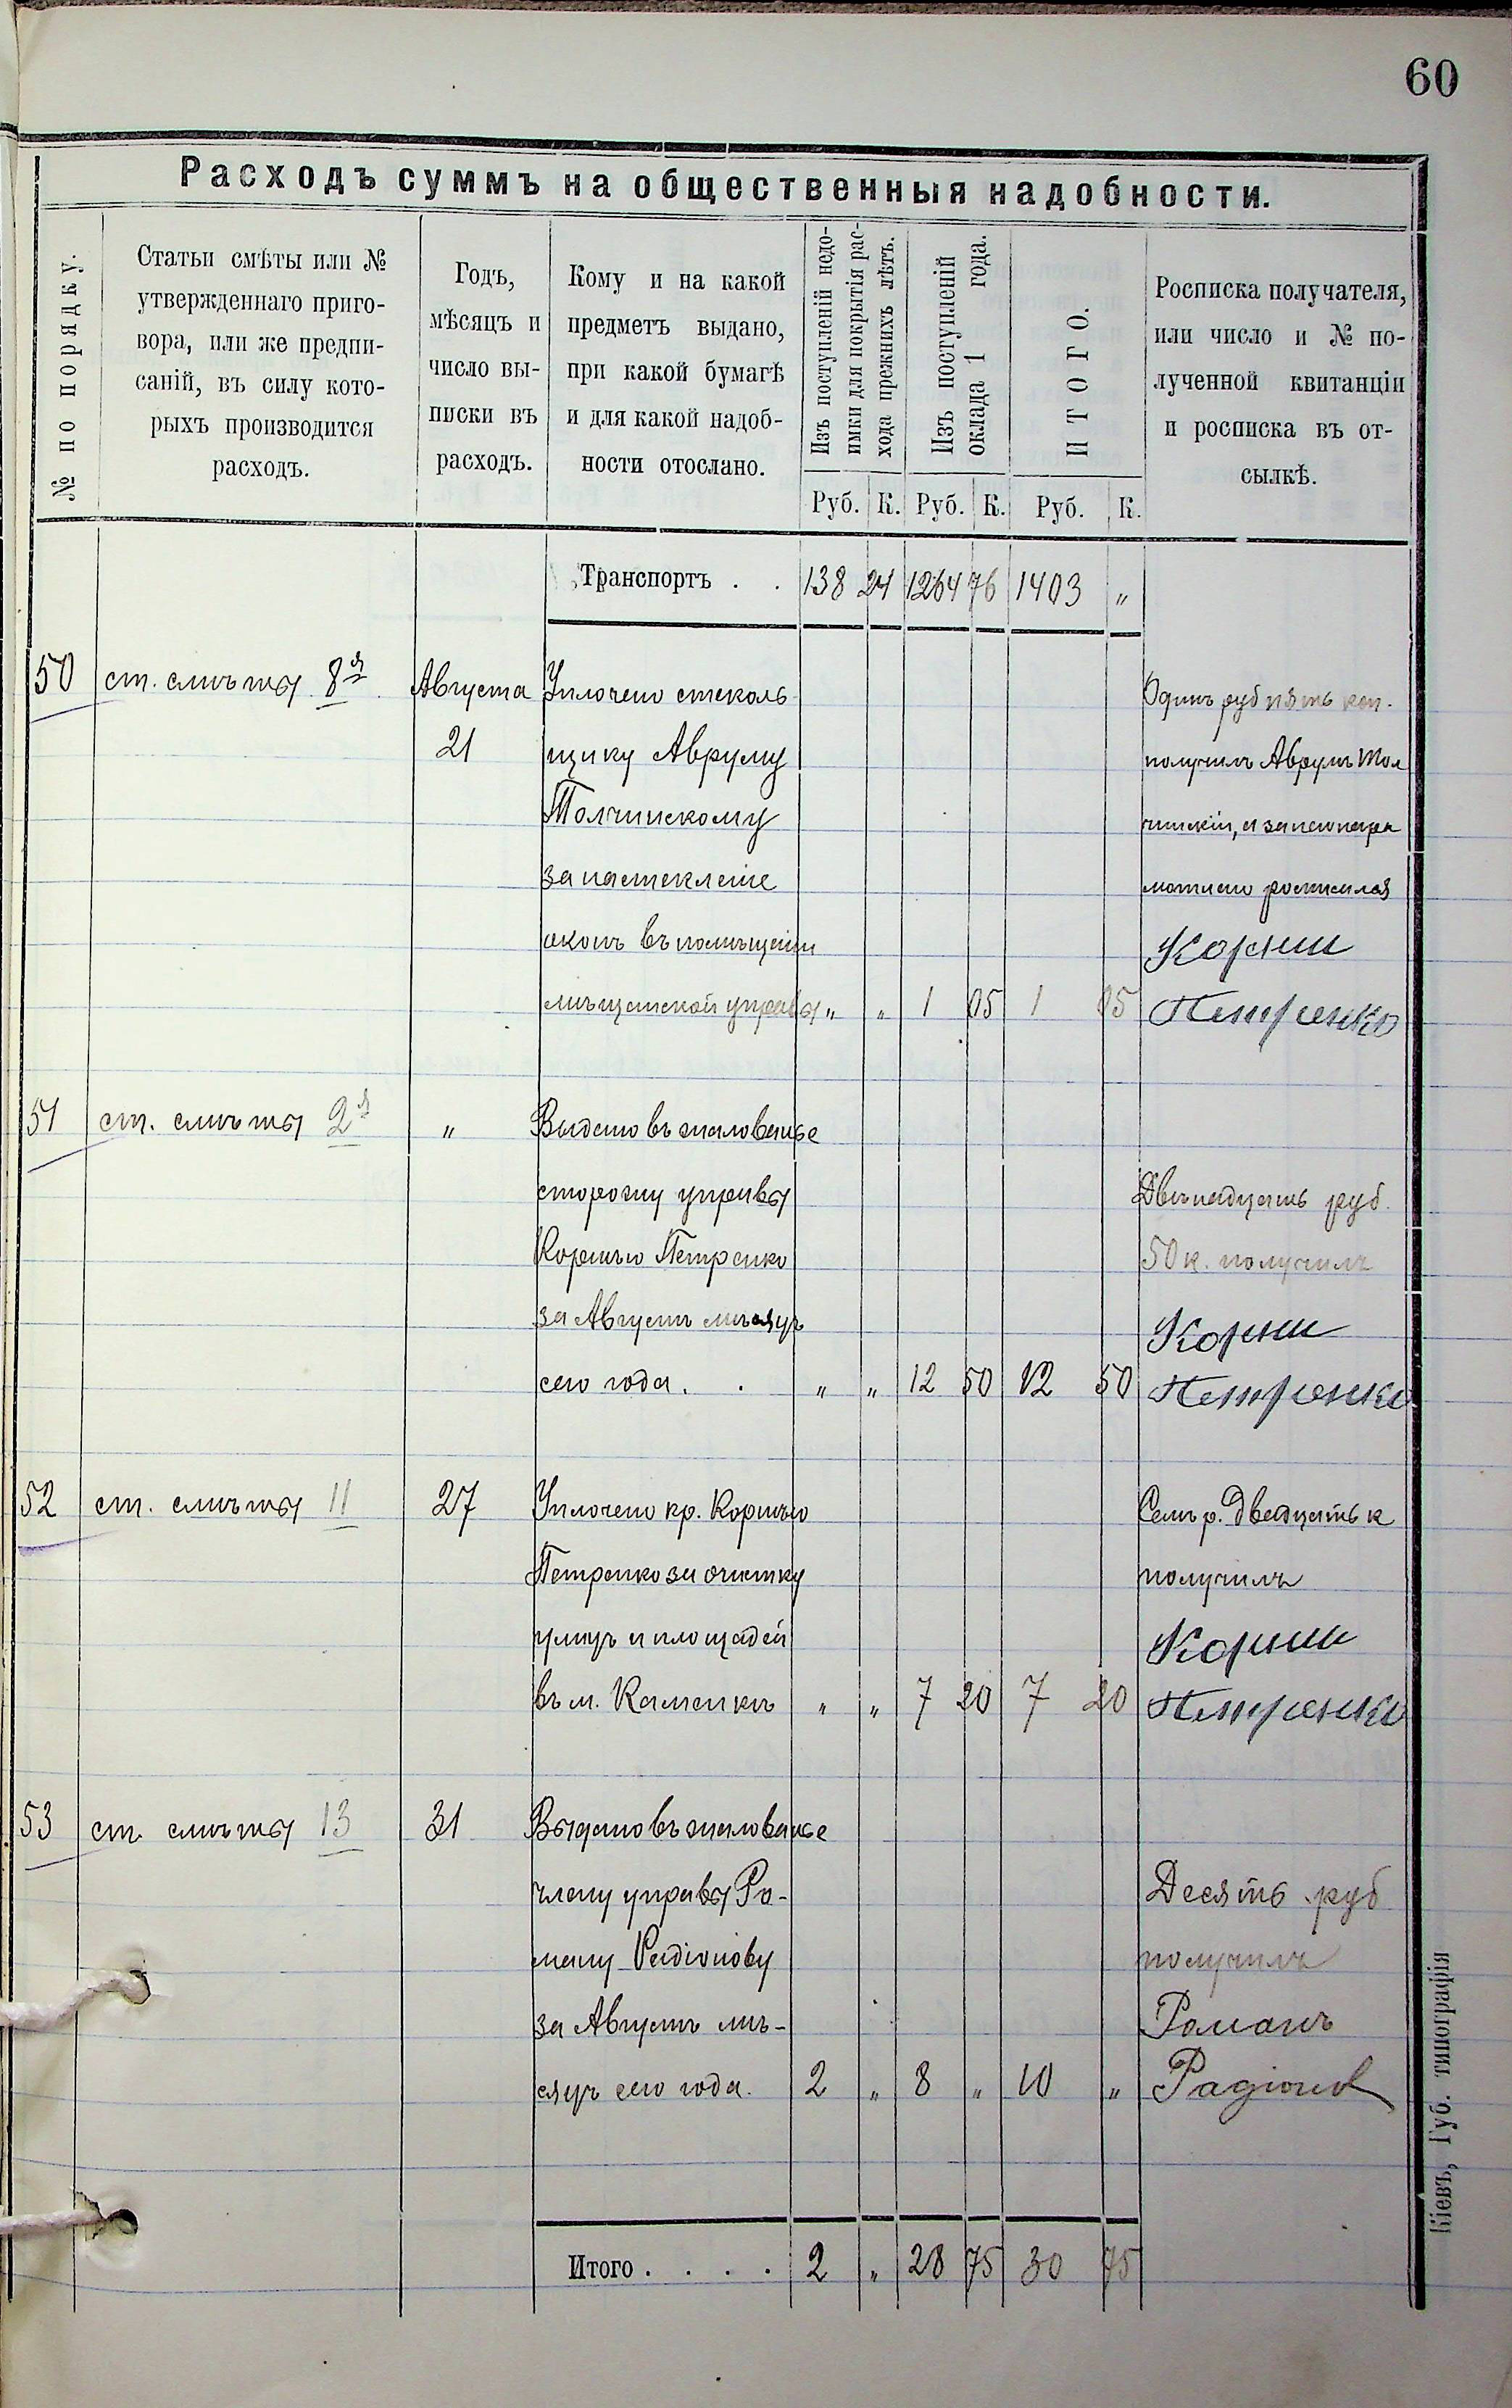 60
Расходъ суммъ на общественныя надобности.
№ по порядку.
Статьи смѣты или №
утвержденнаго приго-
вора, или же предпи-
саній, въ силу кото-
рыхъ производится
расходъ.
Годъ,
мѣсяцъ и
число вы-
писки въ
расходъ.
Кому и на какой
предметъ выдано,
при какой бумагѣ
и для какой надоб-
ности отослано.
Изъ поступленій недо-
имки для покрытія рас-
хода прежнихъ лѣтъ.
Изъ поступленій
оклада 1 года.
ИТОГО.
Росписка получателя,
или число и № по-
лученной квитанціи
и росписка въ от-
сылкѣ.
Руб. К. Руб. К. Руб. К.
Транспортъ . . 138 24 1264 76 1403 „
50 ст. смѣты 8я Августа Уплочено стеколь Одинъ руб пять коп.
21 щику Авруму получилъ Аврумъ Тол
Толчинскому чинскій, а за неграмо
за настекленіе росписался
оконъ въ помѣщеніи Корнии
мѣщанской управы „ „ 1 05 1 05 Петренко
51 ст. смѣты 2я „ Выдано въ жалованье
сторожу управы Двѣнадцать руб.
Корнѣю Петренко 50 к. получилъ
за Августъ мѣсяцъ Корнии
сего года. . „ „ 12 50 12 50 Петренко
52 ст. смѣты 11 27 Уплочено кр. Корнѣю Семь р. двадцать к
Петренко за очистку получилъ
улицъ и площадей Корнии
въ м. Каменкѣ „ „ 7 20 7 20 Петренко
53 ст. смѣты 13 31 Выдано въ жалованье
члену управы Ро- Десять руб
ману Радіонову получилъ
за Августъ мѣ- Романъ
сяцъ сего года. 2 „ 8 „ 10 „ Радіонов
Итого . . . . 2 „ 28 75 30 75
Кіевъ, Губ. типографія